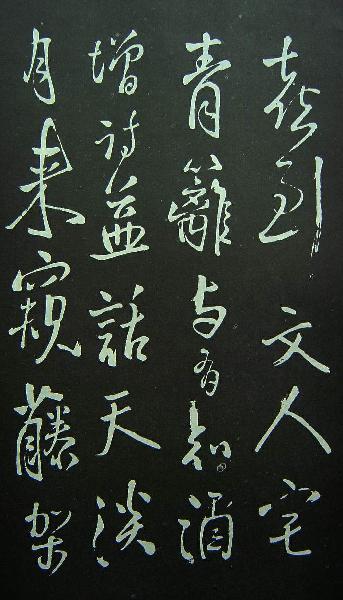 喜到文人宅
青籬与有知酒
增詩益話天淡
月来窺藤架